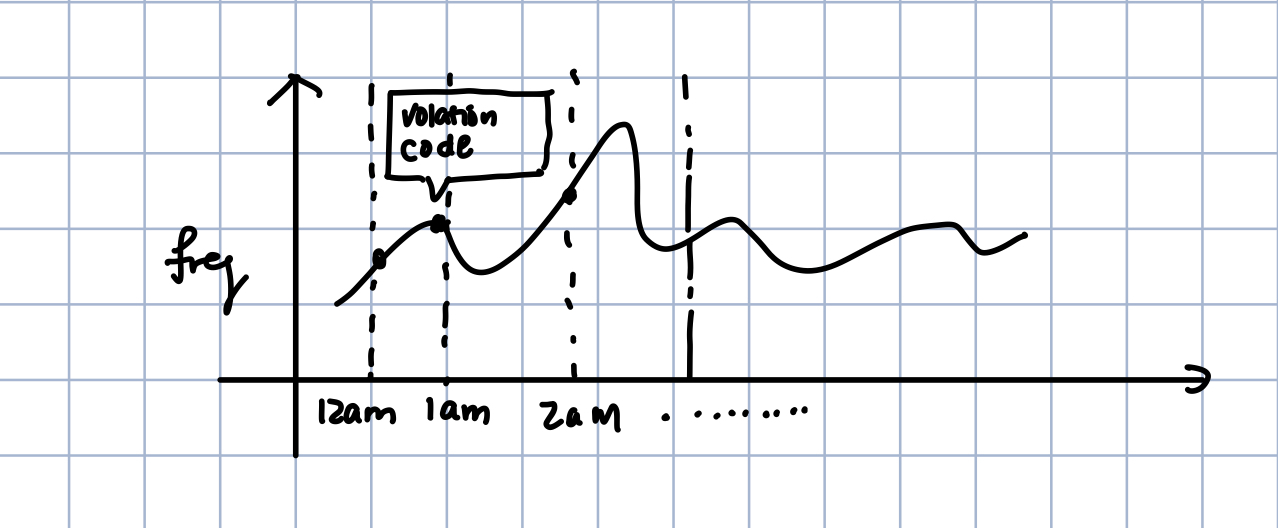 Volation
code
freq
12am 1am 2am . . . . . . . .